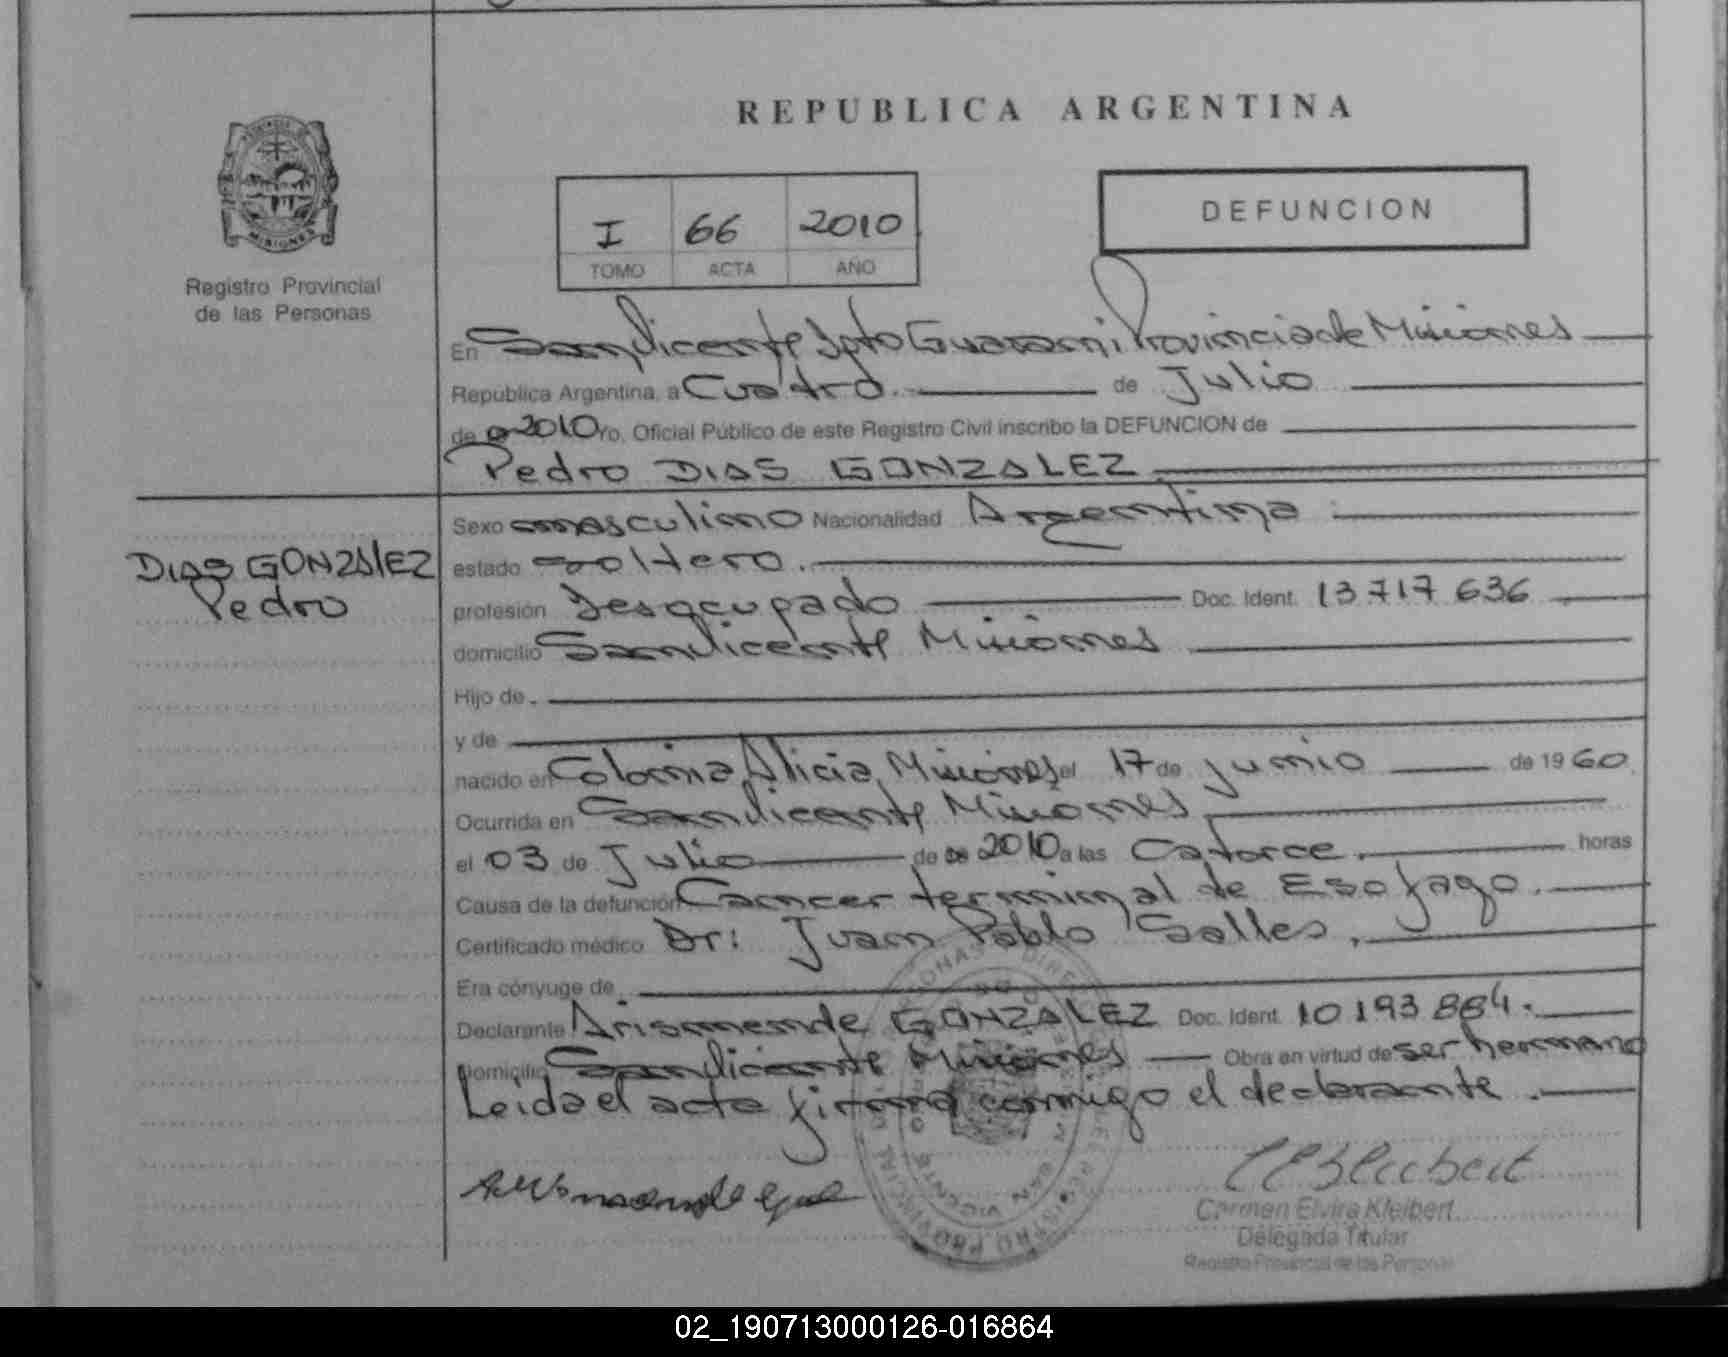 REPUBLICA ARGENTINA
MISIONES
Registro Provincial
de las Personas
I 66 2010
TOMO ACTA AÑO
DEFUNCION
En San Vicente Dpto Guarani Provincia de Misiones
República Argentina, a Cuatro. de Julio
de 2010 Yo, Oficial Público de este Registro Civil inscribo la DEFUNCION de
Pedro DIAS GONZALEZ
DIAS GONZALEZ
Pedro
Sexo masculino Nacionalidad Argentina
estado soltero.
profesión Desocupado Doc. Ident. 13 717 636
domicilio San Vicente Misiones
Hijo de
y de
nacido en Colonia Alicia Misiones el 17 de Junio de 1960
Ocurrida en San Vicente Misiones
el 03 de Julio de 2010 a las Catorce. horas
Causa de la defunción Cancer terminal de Esofago.
Certificado médico Dr: Juan Pablo Salles,
Era cónyuge de
Declarante Arismende GONZALEZ Doc. Ident. 10 193 884.
Domicilio San Vicente Misiones Obra en virtud de ser hermano
Leida el acta firma conmigo el declarante.
Carmen Elvira Kleibert
Delegada Titular
Registro Provincial de las Personas
02_190713000126-016864